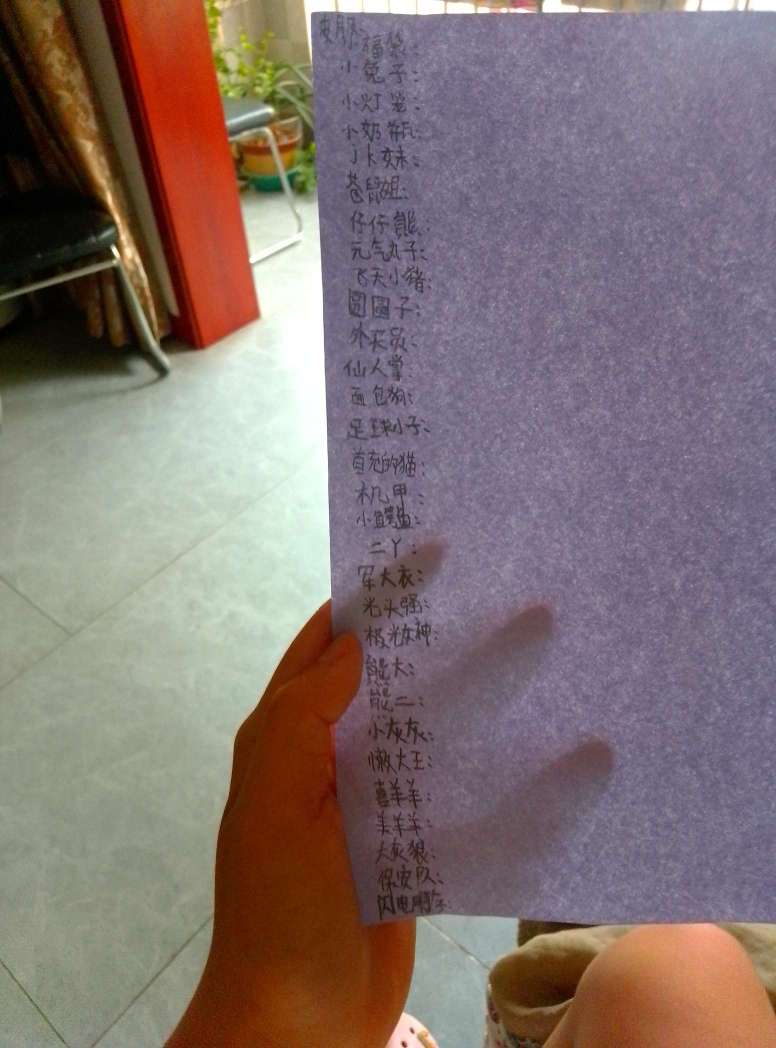 皮肤:
福袋:
小兔子:
小灯笼:
小奶瓶:
JK妹:
苍鼠姐:
仔仔熊:
元气丸子:
飞天小猪:
圆圆子:
外买员:
仙人掌:
面包狗:
足球小子:
首充的猫:
机甲:
小鳄鱼:
二丫:
军大衣:
光头强:
极光女神:
熊大:
熊二:
小灰灰:
懒大王:
喜羊羊:
美羊羊:
大灰狼:
保安队:
闪电